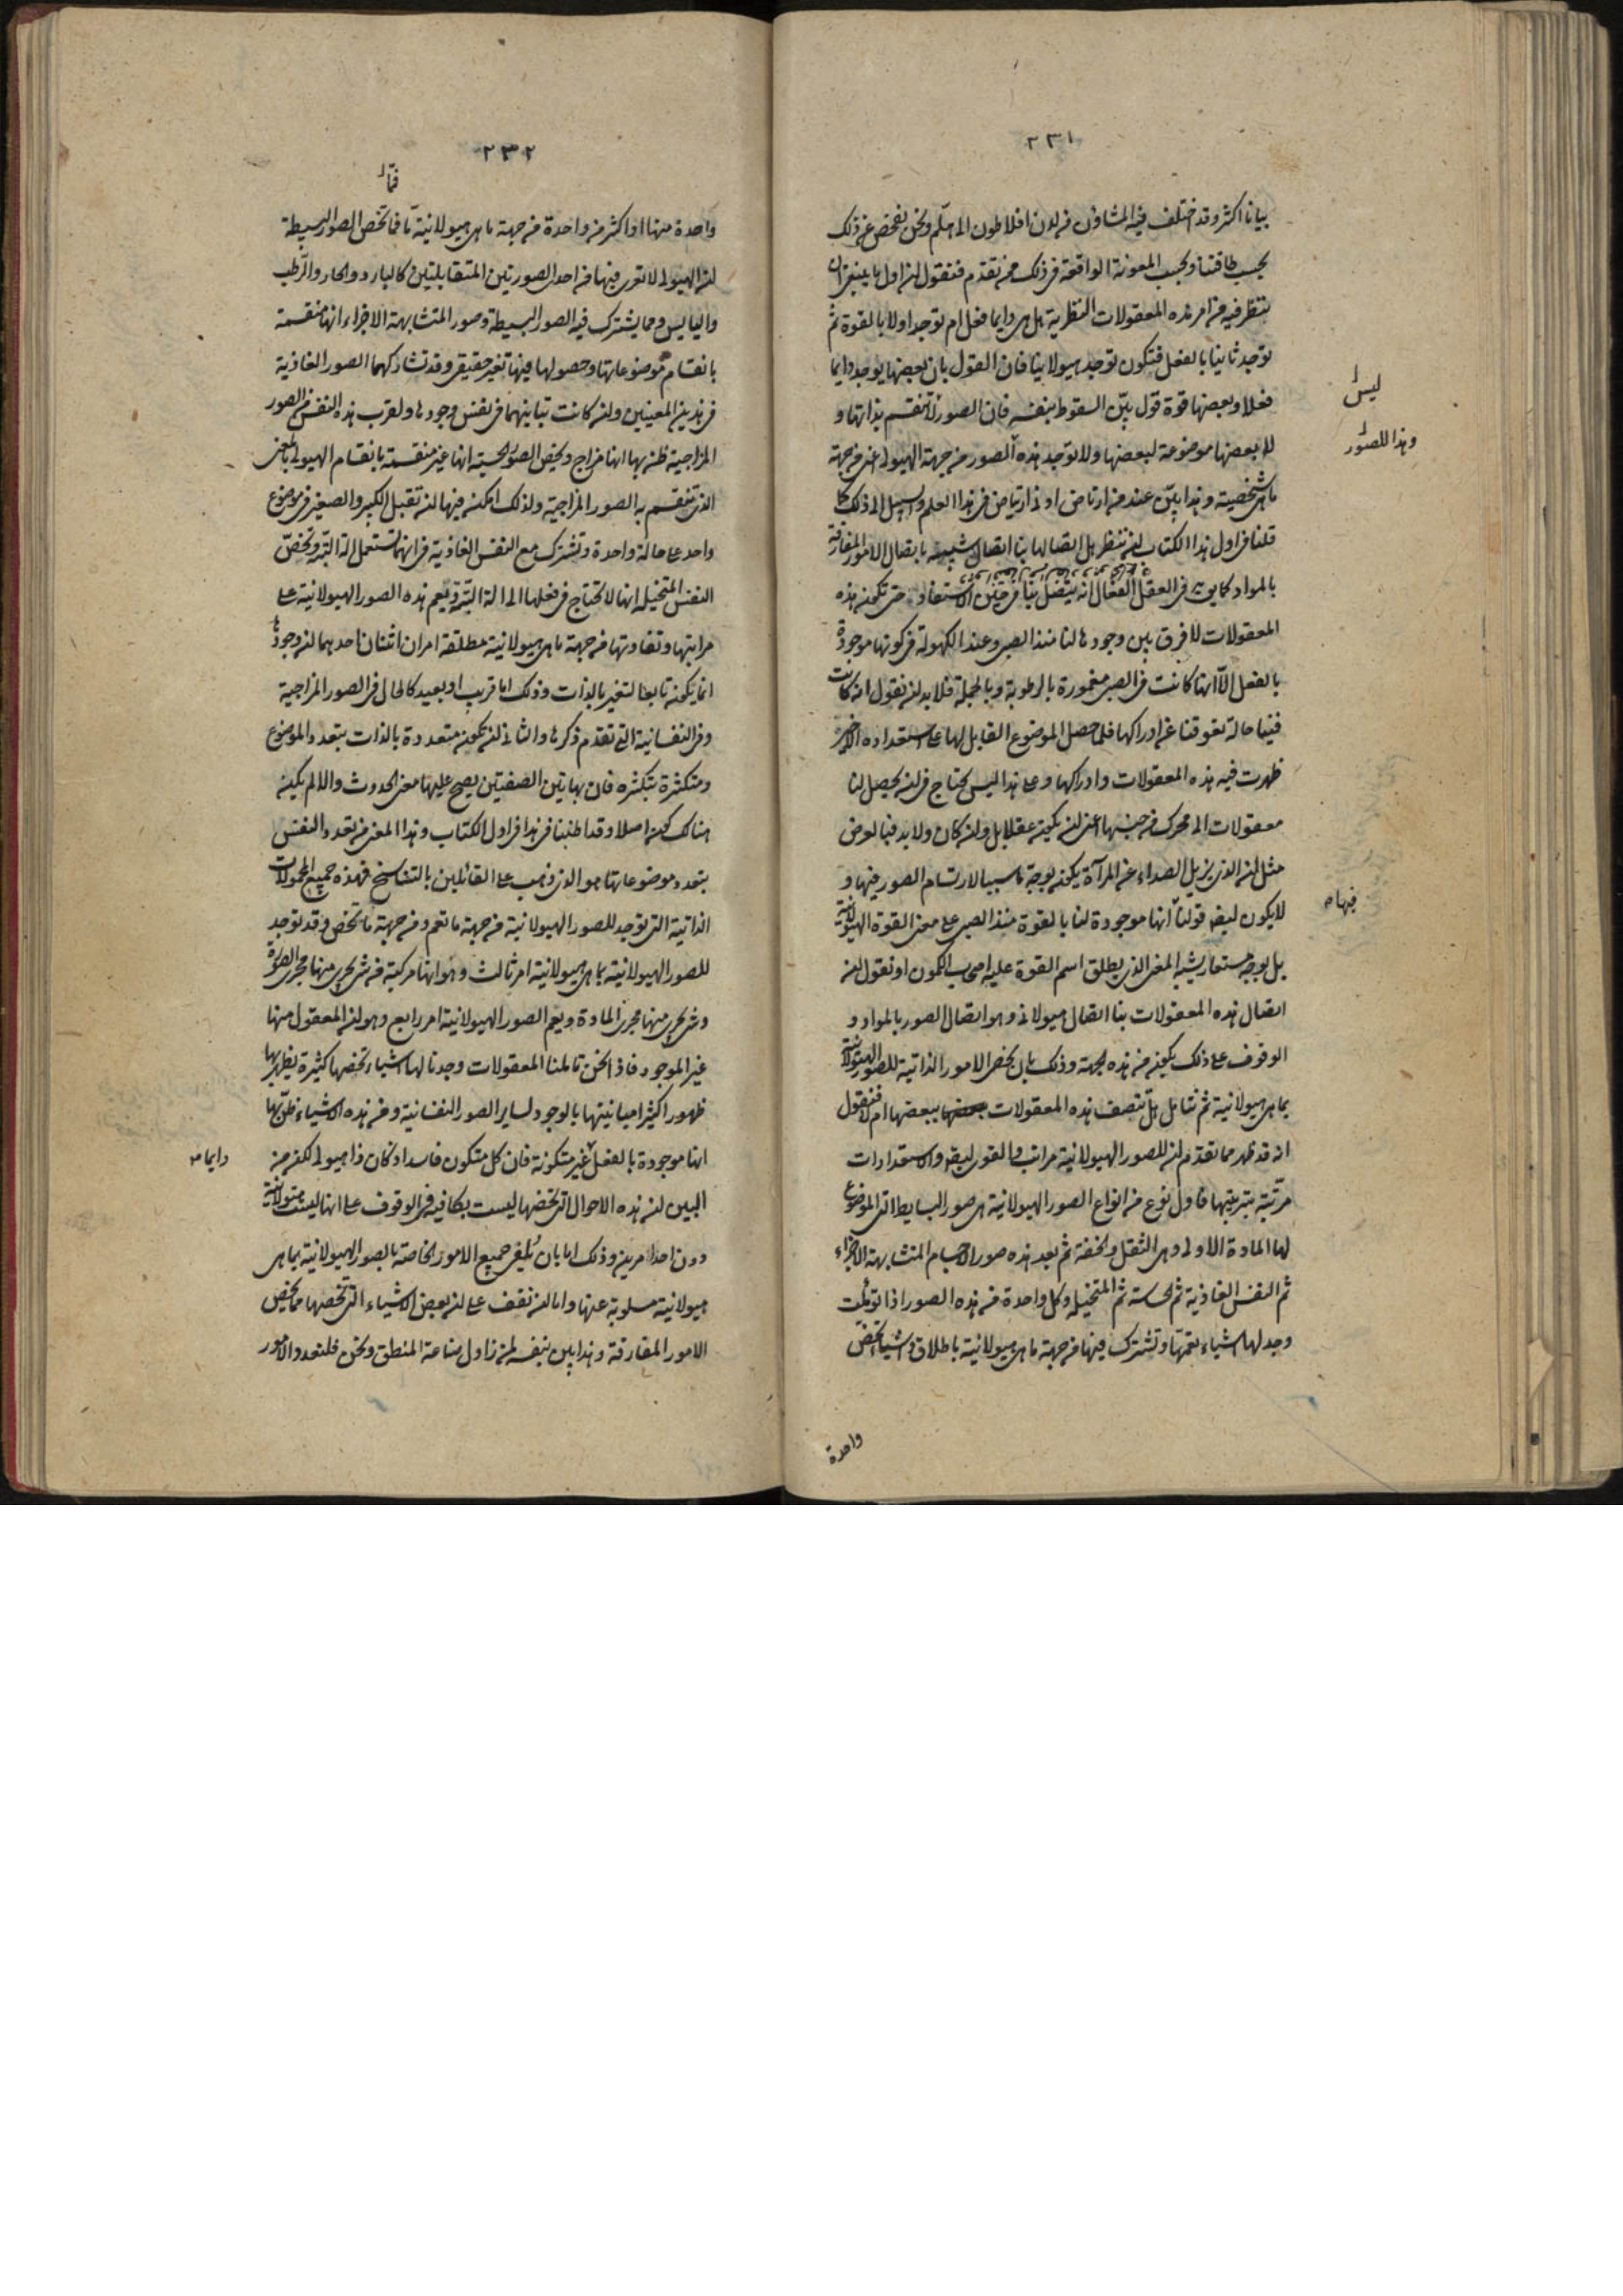 ٢٣١
بيانا اكثر وقد اختلف فيه المشاؤن من لدن افلاطون الى هلم ونحن نفحص عن ذلك
بحسب طاقتنا وبحسب المعونة الواقعة فى ذلك ممن تقدم فنقول ان اول ما ينبغى ان
ننظر فيه من امر هذه المعقولات النظرية هل هى دايما فعل ام توجد اولا بالقوة ثم
توجد ثانيا بالفعل فتكون توجد هيولانيا فان القول بان بعضها يوجد دايما
فعلا وبعضها قوة قول بيّن السقوط بنفسه فان الصور لا تنقسم بذاتها و
لا بعضها موضوعة لبعضها ولا توجد هذه الصور من جهة الهيولى اعنى من جهة
ما هى شخصية وهذا بيّن عند من ارتاض ادنى ارتياض فى هذا العلم والسبيل الى ذلك كما
قلنا فى اول هذا الكتاب ان ننظر هل اتصالها بنا اتصال شبيه باتصال الامور المفارقة
بالمواد كما يق فى العقل الفعال انه يتصل بنا فى حين الاستفاد حتى تكون هذه
المعقولات لا فرق بين وجودها لنا منذ الصبى وعند الكهولة فى كونها موجودة
بالفعل الّا انها كانت فى الصبى مغمورة بالرطوبة وبالجملة فلا بد ان نقول انه كانت
فينا حالة تعوقنا عن ادراكها فلما حصل الموضوع القابل لها على استعداده الاخير
ظهرت فيه هذه المعقولات وادراكها وعلى هذا ليس تحتاج فى ان يحصل لنا
معقولات الى محرك من جنسها اعنى ان يكون عقلا بل وان كان ولا بد فبالعرض
مثل ان الذى يزيل الصداء عن المرآة يكون بوجه ما سببا لارتسام الصور فيها و
لا يكون ليضه قولنا انها موجودة لنا بالقوة منذ الصبى على معنى القوة الهيولانية
بل بوجه مستعار يشبه المعنى الذى يطلق اسم القوة عليه اصحاب الكمون او نقول ان
اتصال هذه المعقولات بنا اتصال هيولانى وهو اتصال الصور بالمواد و
الوقوف على ذلك يكون من هذه الجهة وذلك بان نحصى الامور الذاتية للصور الهيولانية
بما هى هيولانية ثم نتامل هل تتصف هذه المعقولات ببعضها ام لا فنقول
انه قد ظهر مما تقدم ان للصور الهيولانية مراتب والقوى ليضه والاستعدادات
مرتبة بترتيبها فاول نوع من انواع الصور الهيولانية هى صور البسايط التى الموضوع
لها المادة الاولى وهى الثقل والخفة ثم بعد هذه صور الاجسام المتشابهة الاجزاء
ثم النفس الغاذية ثم الحساسة ثم المتخيلة وكل واحدة من هذه الصور اذا تؤمّلت
وجد لها اشياء تعمها وتشترك فيها من جهة ما هى هيولانية باطلاق واشياء تخصّ
واحدة
ليس
وهذا للصور
فيها
٢٣٢
فما
واحدة منها او اكثر من واحدة من جهة ما هى هيولانية ما فما تخص الصور البسيطة
ان الهيولى لا تعرى فيها من احدى الصورتين المتقابلتين كالبارد والحار والرّطب
واليابس ومما يشترك فيه الصور البسيطة وصور المتشابهة الاجزاء انها منقسمة
بانقسام موضوعاتها وحصولها فيها بتغير حقيقى وقد تشاركهما الصور الغاذية
فى هذين المعنيين وان كانت تباينهما فى نفس وجودها ولقرب هذه النفس من الصور
المزاجية ظن بها انها مزاج ويخص الصور الحسية انها غير منقسمة بانقسام الهيولى بالمعنى
الذى تنقسم به الصور المزاجية ولذلك امكن فيها ان تقبل الكبير والصغير فى موضوع
واحد على حالة واحدة وتشترك مع النفس الغاذية فى انهما تستعمل الة البتة وتخصّ
النفس المتخيلة انها لا تحتاج فى فعلها الى الة البتة ويعم هذه الصور الهيولانية على
مراتبها وتفاوتها من جهة ما هى هيولانية مطلقة امران اثنان احدهما ان وجودها
انما يكون تابعا لتغير بالذات وذلك اما قريب او بعيد كالحال فى الصور المزاجية
وفى النفسانية التى تقدم ذكرها والثانى ان تكون متعددة بالذات بتعدد الموضوع
ومتكثرة بتكثره فان بهاتين الصفتين يصح عليها معنى الحدوث والا لم يكن
هنالك كون اصلا وقد اطنبنا فى هذا فى اول الكتاب وهذا المعنى من تعدد النفس
بتعدد موضوعاتها هو الذى ذهب على القائلين بالتناسخ فهذه جميع المحمولات
الذاتية التى توجد للصور الهيولانية من جهة ما تعم ومن جهة ما تخص وقد توجد
للصور الهيولانية بما هى هيولانية امر ثالث وهو انها مركبة من شى يجرى منها مجرى الصورة
وشى يجرى منها مجرى المادة ويعم الصور الهيولانية امر رابع وهو ان المعقول منها
غير الموجود فاذ نحن تاملنا المعقولات وجدنا لها اشياء تخصها كثيرة يظهر بها
ظهورا كثيرا مباينتها بالوجود لساير الصور النفسانية ومن هذه الاشياء ظن بها
انها موجودة بالفعل غير متكونة فان كل متكون فاسد اذ كان ذا هيولى لكن من
البين ان هذه الاحوال التى تخصها ليست بكافية فى الوقوف على انها ليست هيولانية
دون احد امرين وذلك اما بان نلفى جميع الامور الخاصة بالصور الهيولانية بما هى
هيولانية مسلوبة عنها واما ان نقف على ان بعض الاشياء التى تخصها مما يخص
الامور المفارقة وهذا بين بنفسه لمن زاول صناعة المنطق ونحن فلنعدد الامور
دايما